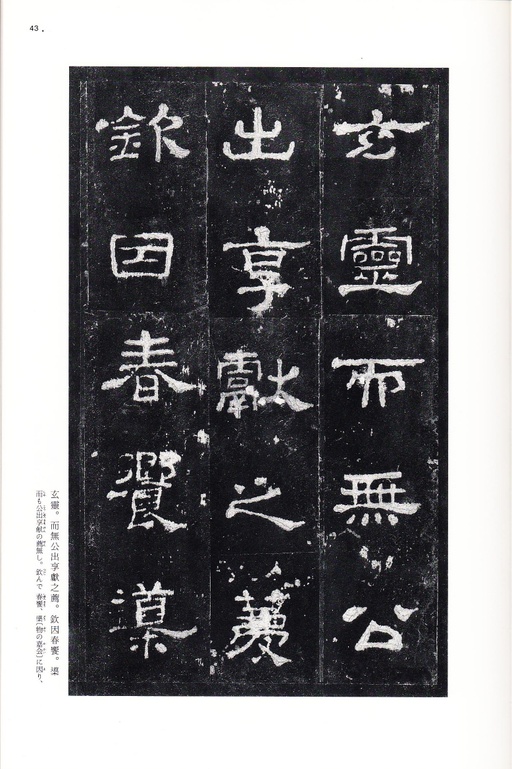 43
玄靈而無公
出享獻之薦
欽因春饗
玄靈。而無公出享獻之薦。欽因春饗。
而も公出享献の薦無し。欽んで春饗、